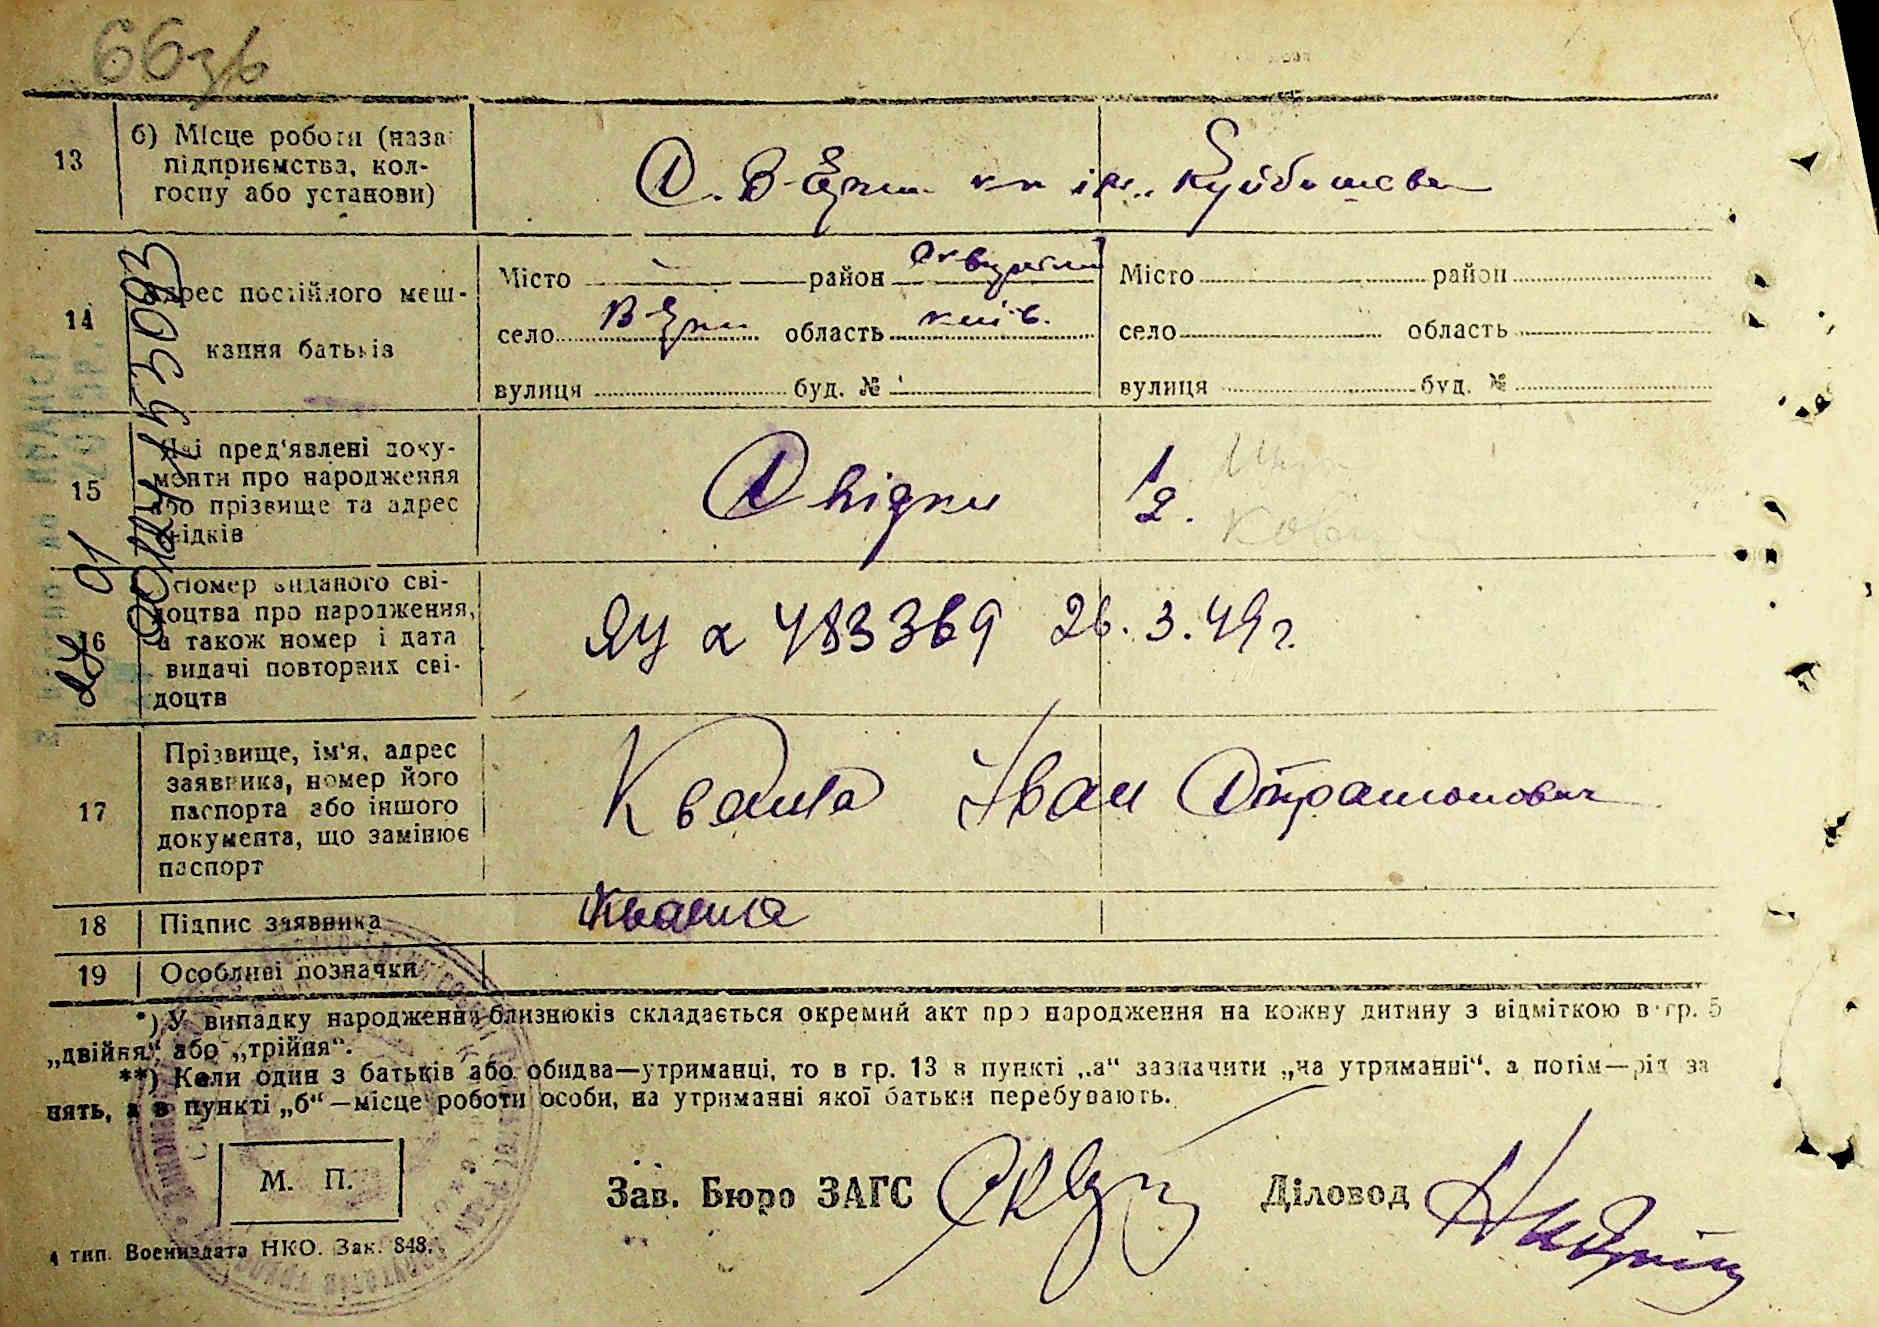 66зв
13
б) Місце роботи (наза
підприємства, кол-
госпу або установи)
С. В-Єрчи кп ім. Куйбишева
14
адрес постійного меш-
кання батьків
Місто район Сквирськ
село В-Єрчи область київ.
вулиця буд. №
Місто район
село область
вулиця буд. №
15
Які пред'явлені доку-
менти про народження
або прізвище та адрес
свідків
Свідки
1
2.
16
Номер виданого сві-
доцтва про народження,
а також номер і дата
видачі повторних сві-
доцтв
ЯЦ 483369 26.3.49 г.
17
Прізвище, ім'я, адрес
заявника, номер його
паспорта або іншого
документа, що замінює
паспорт
Кваша Іван
18
Підпис заявника
Кваша
19
Особливі позначки
*) У випадку народження близнюків складається окремий акт про народження на кожну дитину з відміткою в гр. 5
„двійня“ або „трійня“.
**) Коли один з батьків або обидва—утриманці, то в гр. 13 в пункті „а“ зазначити „на утриманні“, а потім—рід за
нять, а в пункті „б“—місце роботи особи, на утриманні якої батьки перебувають.
М. П.
Зав. Бюро ЗАГС
Діловод
4 тип. Воениздата НКО. Зак. 848.